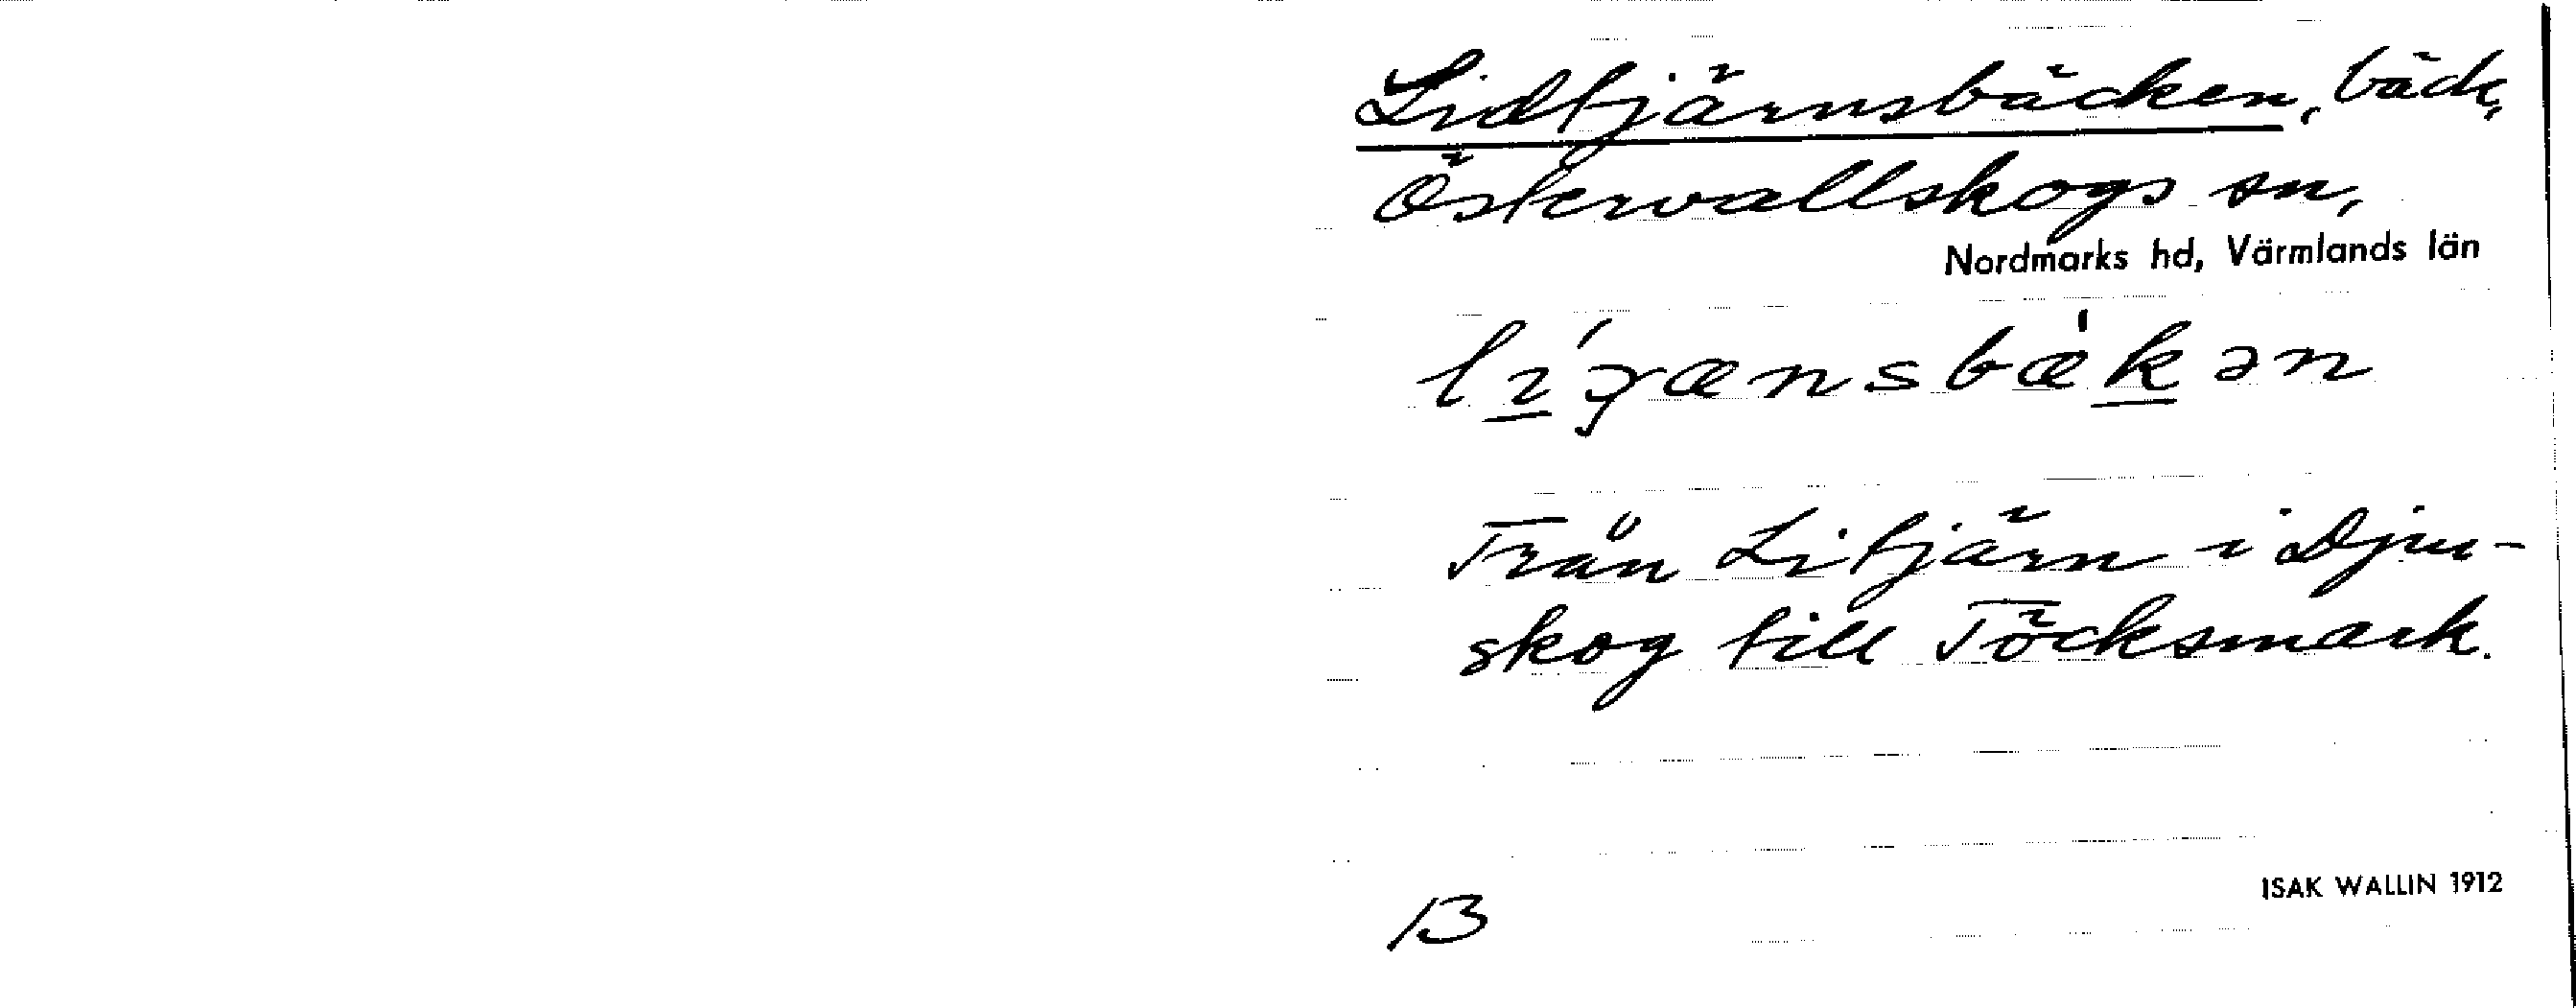 Lidtjärnsbäcken, bäck,
Östervallskogs sn,
Nordmarks hd, Värmlands län
Från Litjärn i Dju-
skog till Töcksmark.
ISAK WALLIN 1912
13